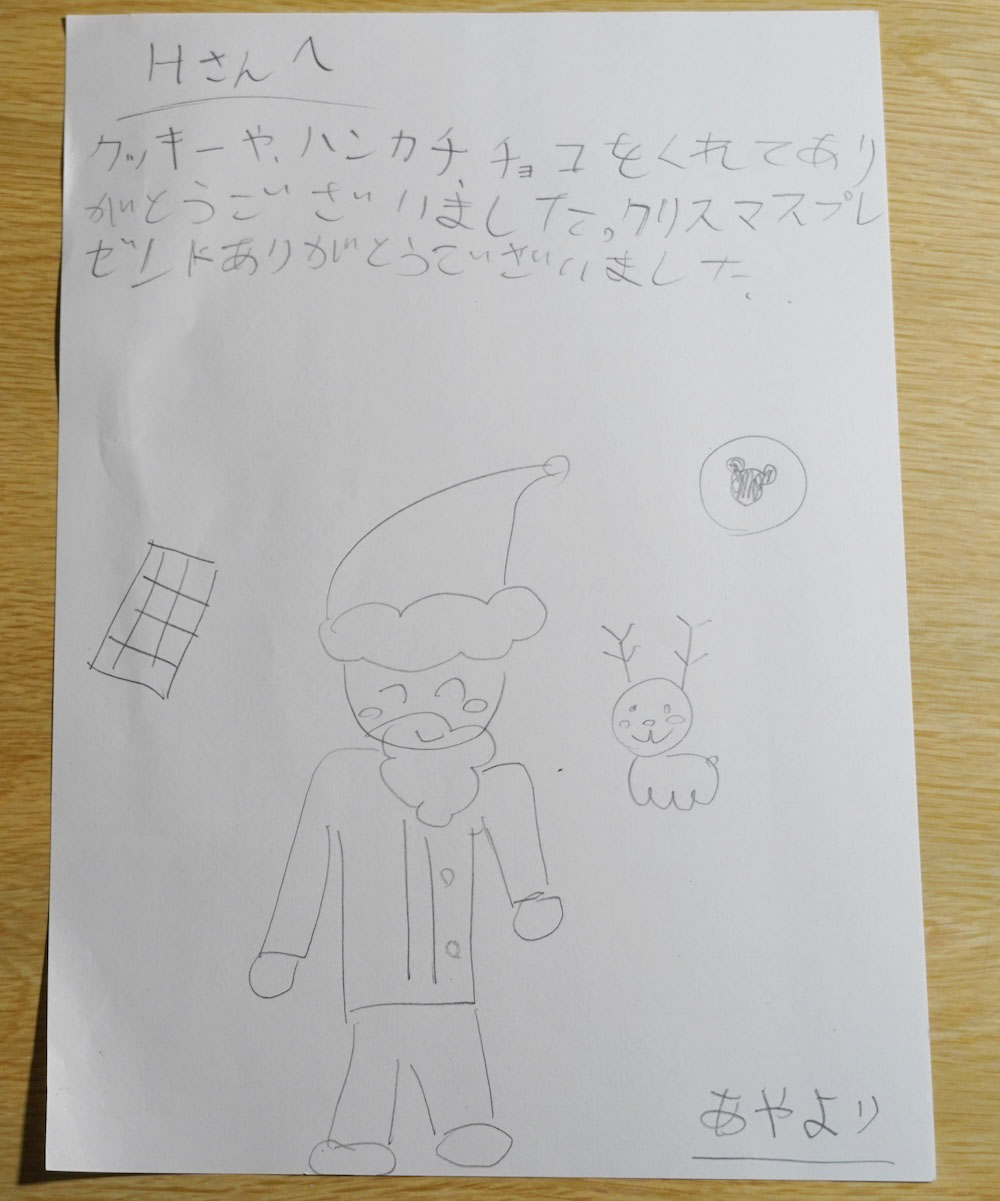 Hさんへ
クッキーや、ハンカチ、チョコをくれてあり
がとうございました。クリスマスプレ
ゼンドありがとうございました。
あやより